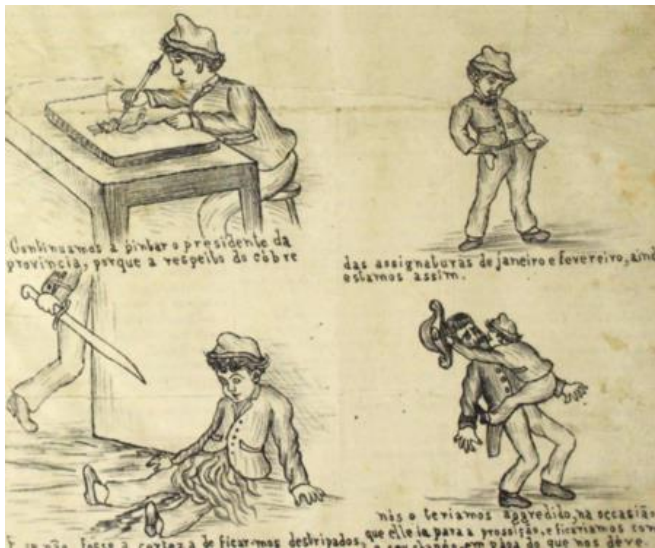 Continuamos a pintar o presidente da
provincia, porque a respeito do cobre
das assignaturas de janeiro e fevereiro, aind
estamos assim.
E se não fosse a certeza de ficarmos destripados,
nós o teriamos aggredido, na occasião
que elle ia para a prossição, e ficariamos com
em paga do que nos deve.